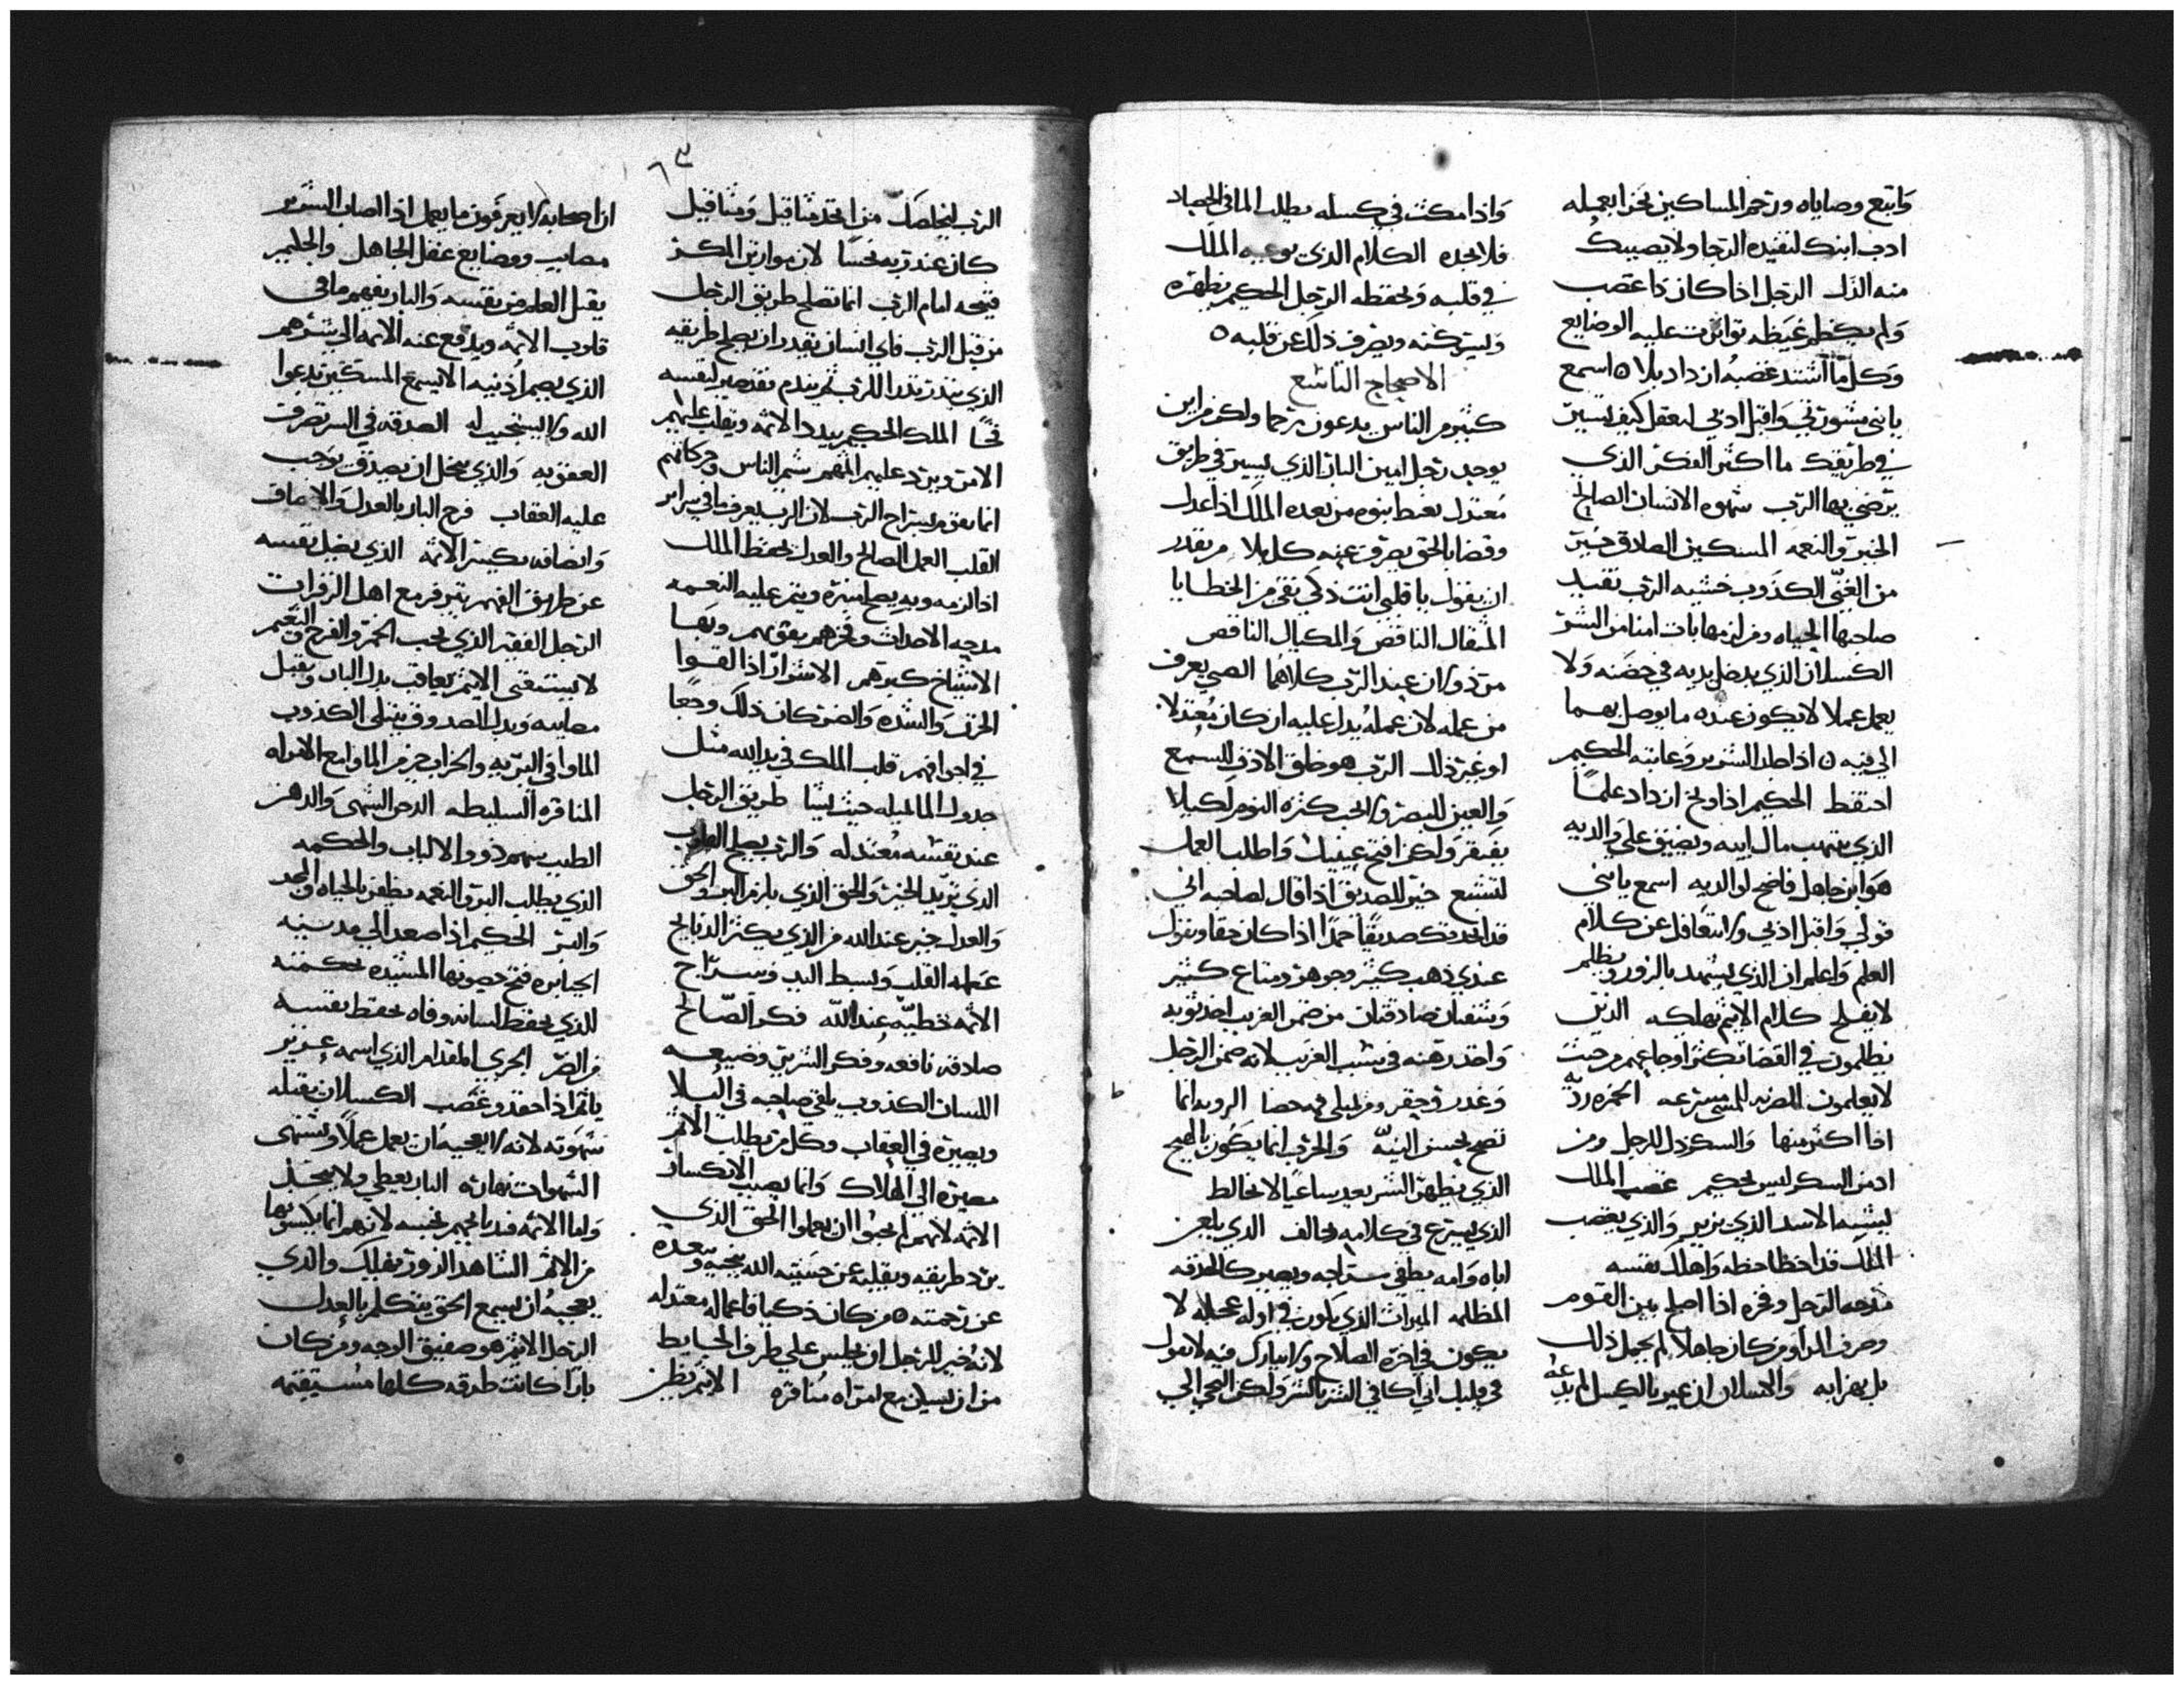 واتبع وصاياه ورحم المساكين يجزا بعمله
ادب ابنك لتفيده الرجا ولا يصيبك
منه الذل الرجل اذا كان ذا غضب
ولم يكظم غيظه تواترت عليه الوضايع
وكلما اشتد غضبه ازداد بلا ه اسمع
يا بني مشورتي واقبل ادبي لتعقل كيف تسير
في طريقك ما اكثر الفكر الذي
يرضي بها الرب شهوه الانسان الصالح
الخير والنعمه المسكين الصادق خير
من الغني الكذوب خشيه الرب تفيد
صاحبها الحياه ومن هابها بات امنا من الشر
الكسلان الذي يدخل يديه في حضنه ولا
يعمل عملا لا يكون عنده ما يوصل بهما
الي فيه ه اذا ضل الشرير وعاينه الحكيم
احتفظ الحكيم اذا وبخ ازداد علما
الذي ينهب مال ابيه ويضيق علي والديه
هو ابن جاهل فاضح لوالديه اسمع يا بني
قولي واقبل ادبي ولا تتغافل عن كلام
العلم واعلم ان الذي يشهد بالزور ويظلم
لا يفلح كلام الاثيم يهلكه الذين
يظلمون في القضا تكثر اوجاعهم من حيث
لا يعلمون الضرب للمسي مسرعه الخمره رديه
اذا اكثر منها والسكر ذل للرجل ومن
ادمن السكر ليس بحكيم غضب الملك
يشبه الاسد الذي يزير والذي يغضب
الملك قد اخطا حظه واهلك نفسه
مدحه الرجل وفخره اذا اصلح بين القوم
وصرف المرا ومن كان جاهلا لم يجمل ذلك
بل يهزا به والكسلان ان عير بالكسل لم يدعه
واذا مكث في كسله يطلب الما في الحصاد
فلا يجده الكلام الذي يوعيه الملك
في قلبه ويحفظه الرجل الحكيم يظهره
ويستركنه ويصرف ذلك عن قلبه ه
الاصحاح التاسع
كثير من الناس يدعون رحما ولكن من اين
يوجد رجل امين البار الذي يسير في طريق
معتدل يغبط بنوه من بعده الملك اذا عدل
وقضا بالحق يصرف عنه كل بلا من يقدر
ان يقول يا قلبي انت ذكي نقي من الخطايا
المثقال الناقص والمكيال الناقص
مرذولان عند الرب كلاهما الصبي يعرف
من عمله لان عمله يدل عليه ان كان معتدلا
او غير ذلك الرب هو خالق الاذن للسمع
والعين للبصر ولا تحب كثره النوم لكيلا
تفتقر ولكن افتح عينيك واطلب العمل
لتشبع خير للصديق اذا قال لصاحبه اني
قد اتخذتك صديقا حمدا اذا كان حقا ويقول
عندي ذهب كثير وجوهر ومتاع كثير
وشفتان صادقتان من ضمن الغريب اخذ ثوبه
واخذ رهنه في سبب الغريب لانه ضمن الرجل
وغدر وحقر ومن يمتلي فمه حصا الرويه انما
تصح بحسن النيه والحرب انما يكون بالهيج
الذي يظهر السر يعد ساعيا لا تخالط
الذي يسرع في كلامه وتحالف الذي يلعن
اباه وامه يطفي سراجه ويصير كالحدقه
المظلمه الميراث الذي يكون في اوله عجله لا
يكون في اخره الصلاح ولا يبارك فيه لا تقول
في قلبك اني اكافي الشر بالشر ولكن التجي الي
٦٣
الرب ليخلصك من اتخذ مثاقيل ومثاقيل
كان عند ربه نجسا لان موازين المكر
قبيحه امام الرب انما تصلح طريق الرجل
من قبل الرب فاي انسان يقدر ان يصلح طريقه
الذي ينذر نذرا للرب ثم يندم تقد صير لنفسه
فخا الملك الحكيم يبدد الاثمه ويقلب عليهم
الامر ويرد عليهم اثمهم شم الناس وحركاتهم
انما يقوم بسراج الرب لان الرب يعرف ما في سراير
القلب العمل الصالح والعدل يحفظ الملك
اذا لزمه وبه يصلح منبره ويتم عليه النعمه
مدحه الاحداث وفخرهم بقوتهم وبها
الاشياخ كبرهم الاشرار اذا القوا
الحزن والشده والضر كان ذلك وجعا
في اجوافهم قلب الملك في يد الله مثل
جدول الما لميله حيث يشا طريق الرجل
عند نفسه معتدله والرب يصلح القلوب
الذي يريد الخير والحق الذي يلزم البر والحق
والعدل خير عند الله من الذي يكثر الذبايح
عمله القلب وبسط اليد وسراج
الاثمه خطيه عند الله فكر الصالح
صادقه نافعه وفكر الشرير وضيعه
اللسان الكذوب يلقي صاحبه في البلا
ويصيره في العقاب وكل من يطلب الاثم
مصيره الي الهلاك وانما يصيب الانكسار
الاثمه لانهم لم يحبوا ان يعملوا الحق الذي
يرد طريقه ويقلبه عن خشيه الله ينجيه ويبعده
عن رحمته ه من كان ذكيا فاعماله معتدله
لانه خير للرجل ان يجلس علي طرف الحايط
من ان يسكن مع امراه منافره الاثيم يظن
ان اصحابه لا يعرفون ما يعمل اذا اصاب الشرير
مصايب ووضايع عقل الجاهل والحليم
يقبل العلم من نفسه والبار يفهم ما في
قلوب الاثمه ويدفع عنه الاثمه الي شرهم
الذي يصم اذنيه الا يسمع المسكين يدعوا
الله ولا يستجيب له الصدقه في السر تصرف
العقوبه والذي يبخل ان يصدق يوجب
عليه العقاب فرح البار بالعدل والانصاف
وانصافه يكسر الاثمه الذي يضل نفسه
عن طريق الفهم يتبرفر مع اهل الزفرات
الرجل الفقير الذي يحب الخمر والفرح والنعيم
لا يستغني الاثيم يعاقب بدل البار ويقبل
مصايبه وبدل الصدوق يبتلي الكذوب
الماوا في البريه والخراب خير من الماوا مع الامراه
المنافره السليطه الدخر الشهي والدهن
الطيب يفهم ذوو الالباب والحكمه
الذي يطلب البر والنعمه يظفر بالحياه والمجد
والبر الحكيم اذا صعد الي مدينه
الجبابره فتح حصونها المشيده بحكمته
الذي يحفظ لسانه وفاه يحفظ نفسه
من الضر الجري المقدام الذي اسمه عزيز
ياثم اذا حقد وغضب الكسلان تقتله
شهوته لانه لا يعجبه ان يعمل عملا ويشتهي
الشهوات نهاره البار يعطي ولا يبخل
واما الاثمه فذبايحهم نجسه لانهم انما يكسبونها
من الاثم الشاهد الزور يهلك والذي
يعجبه ان يسمع الحق يتكلم بالعدل
الرجل الاثيم هو صفيق الوجه ومن كان
بارا كانت طرقه كلها مستقيمه